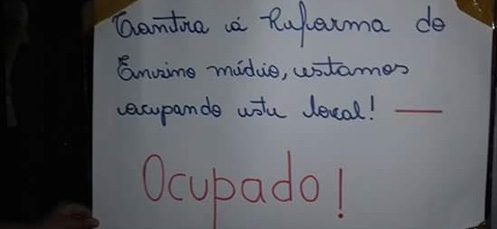 Contra á Reforma do
Ensino médio, estamos
ocupando este local! —
Ocupado!